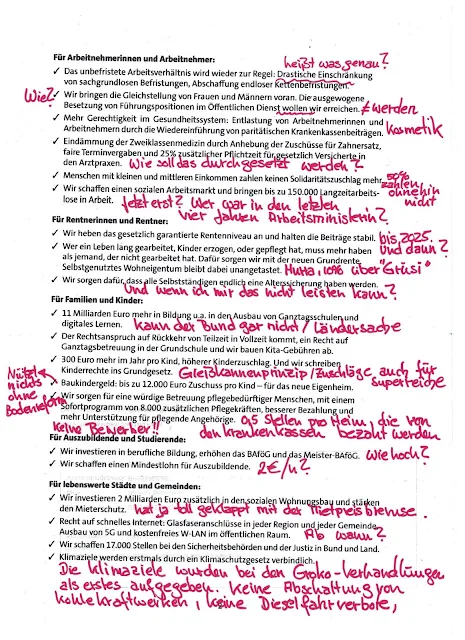 Für Arbeitnehmerinnen und Arbeitnehmer:
heißt was genau?
✓ Das unbefristete Arbeitsverhältnis wird wieder zur Regel: Drastische Einschränkung
von sachgrundlosen Befristungen, Abschaffung endloser Kettenbefristungen.
Wie?
✓ Wir bringen die Gleichstellung von Frauen und Männern voran. Die ausgewogene
Besetzung von Führungspositionen im Öffentlichen Dienst wollen wir erreichen. ≠ werden
✓ Mehr Gerechtigkeit im Gesundheitssystem: Entlastung von Arbeitnehmerinnen und
Arbeitnehmern durch die Wiedereinführung von paritätischen Krankenkassenbeiträgen. Kosmetik
✓ Eindämmung der Zweiklassenmedizin durch Anhebung der Zuschüsse für Zahnersatz,
faire Terminvergaben und 25% zusätzlicher Pflichtzeit für gesetzlich Versicherte in
den Arztpraxen. Wie soll das durchgesetzt werden?
✓ Menschen mit kleinen und mittleren Einkommen zahlen keinen Solidaritätszuschlag mehr. 50% zahlen ohnehin nicht
✓ Wir schaffen einen sozialen Arbeitsmarkt und bringen bis zu 150.000 Langzeitarbeits-
lose in Arbeit. Jetzt erst? Wer war in den letzten
vier Jahren Arbeitsministerin?
Für Rentnerinnen und Rentner:
✓ Wir heben das gesetzlich garantierte Rentenniveau an und halten die Beiträge stabil. bis 2025. Und dann?
✓ Wer ein Leben lang gearbeitet, Kinder erzogen, oder gepflegt hat, muss mehr haben
als jemand, der nicht gearbeitet hat. Dafür sorgen wir mit der neuen Grundrente.
Selbstgenutztes Wohneigentum bleibt dabei unangetastet. Hurra, 10% über "Grusi"
✓ Wir sorgen dafür, dass alle Selbstständigen endlich eine Alterssicherung haben werden.
Und wenn ich mir das nicht leisten kann?
Für Familien und Kinder:
✓ 11 Milliarden Euro mehr in Bildung u.a. in den Ausbau von Ganztagsschulen und
digitales Lernen. kann der Bund gar nicht / Ländersache
✓ Der Rechtsanspruch auf Rückkehr von Teilzeit in Vollzeit kommt, ein Recht auf
Ganztagsbetreuung in der Grundschule und wir bauen Kita-Gebühren ab.
✓ 300 Euro mehr im Jahr pro Kind, höherer Kinderzuschlag. Und wir schreiben
Kinderrechte ins Grundgesetz. Gießkannenprinzip / Zuschläge auch für Superreiche
Nützt nichts ohne Bodenreform
✓ Baukindergeld: bis zu 12.000 Euro Zuschuss pro Kind – für das neue Eigenheim.
✓ Wir sorgen für eine würdige Betreuung pflegebedürftiger Menschen, mit einem
Sofortprogramm von 8.000 zusätzlichen Pflegekräften, besserer Bezahlung und
mehr Unterstützung für pflegende Angehörige. 0,5 Stellen pro Heim, die von
Keine Bewerber!! den Krankenkassen bezahlt werden
Für Auszubildende und Studierende:
✓ Wir investieren in berufliche Bildung, erhöhen das BAföG und das Meister-BAföG. wie hoch?
✓ Wir schaffen einen Mindestlohn für Auszubildende. 2€/h?
Für lebenswerte Städte und Gemeinden:
✓ Wir investieren 2 Milliarden Euro zusätzlich in den sozialen Wohnungsbau und stärken
den Mieterschutz. hat ja toll geklappt mit der Mietpreisbremse.
✓ Recht auf schnelles Internet: Glasfaseranschlüsse in jeder Region und jeder Gemeinde.
Ausbau von 5G und kostenfreies W-LAN im öffentlichen Raum. Ab wann?
✓ Wir schaffen 17.000 Stellen bei den Sicherheitsbehörden und der Justiz in Bund und Land.
✓ Klimaziele werden erstmals durch ein Klimaschutzgesetz verbindlich.
Die Klimaziele wurden bei den Groko-Verhandlungen
als erstes aufgegeben. Keine Abschaltung von
Kohlekraftwerken, keine Dieselfahrverbote,